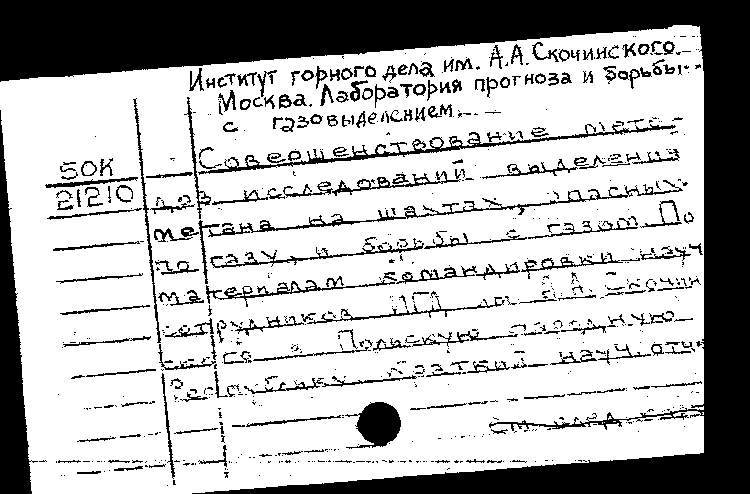 Институт горного дела им. А.А. Скочинского.
Москва. Лаборатория прогноза и борьбы
с газовыделением.
50К
21210
Совершенствование мето-
дов исследований выделения
метана на шахтах, опасных
по газу, и борьбы с газом. По
материалам командировки науч
сотрудников ИГД им А.А. Скочин
ского в Польскую народную
Республику. Краткий науч. отч
см след карт